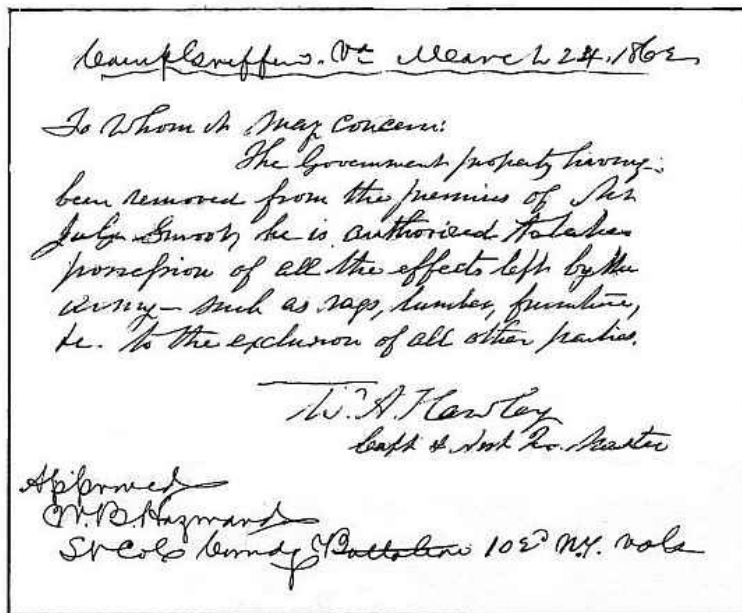 Camp Griffin. Va March 24. 1862
To Whom it May Concern:
The Government property having
been removed from the premises of Mr
Smoot, he is authorised to take
possession of all the effects left by the
army – such as rags, lumber, furniture,
&c. to the exclusion of all other parties.
W. A. Hawley
Capt & Asst Qr. Master
Approved
W. B. Hayward
Lt Col Comdg Battalion 102d N.Y. Vols